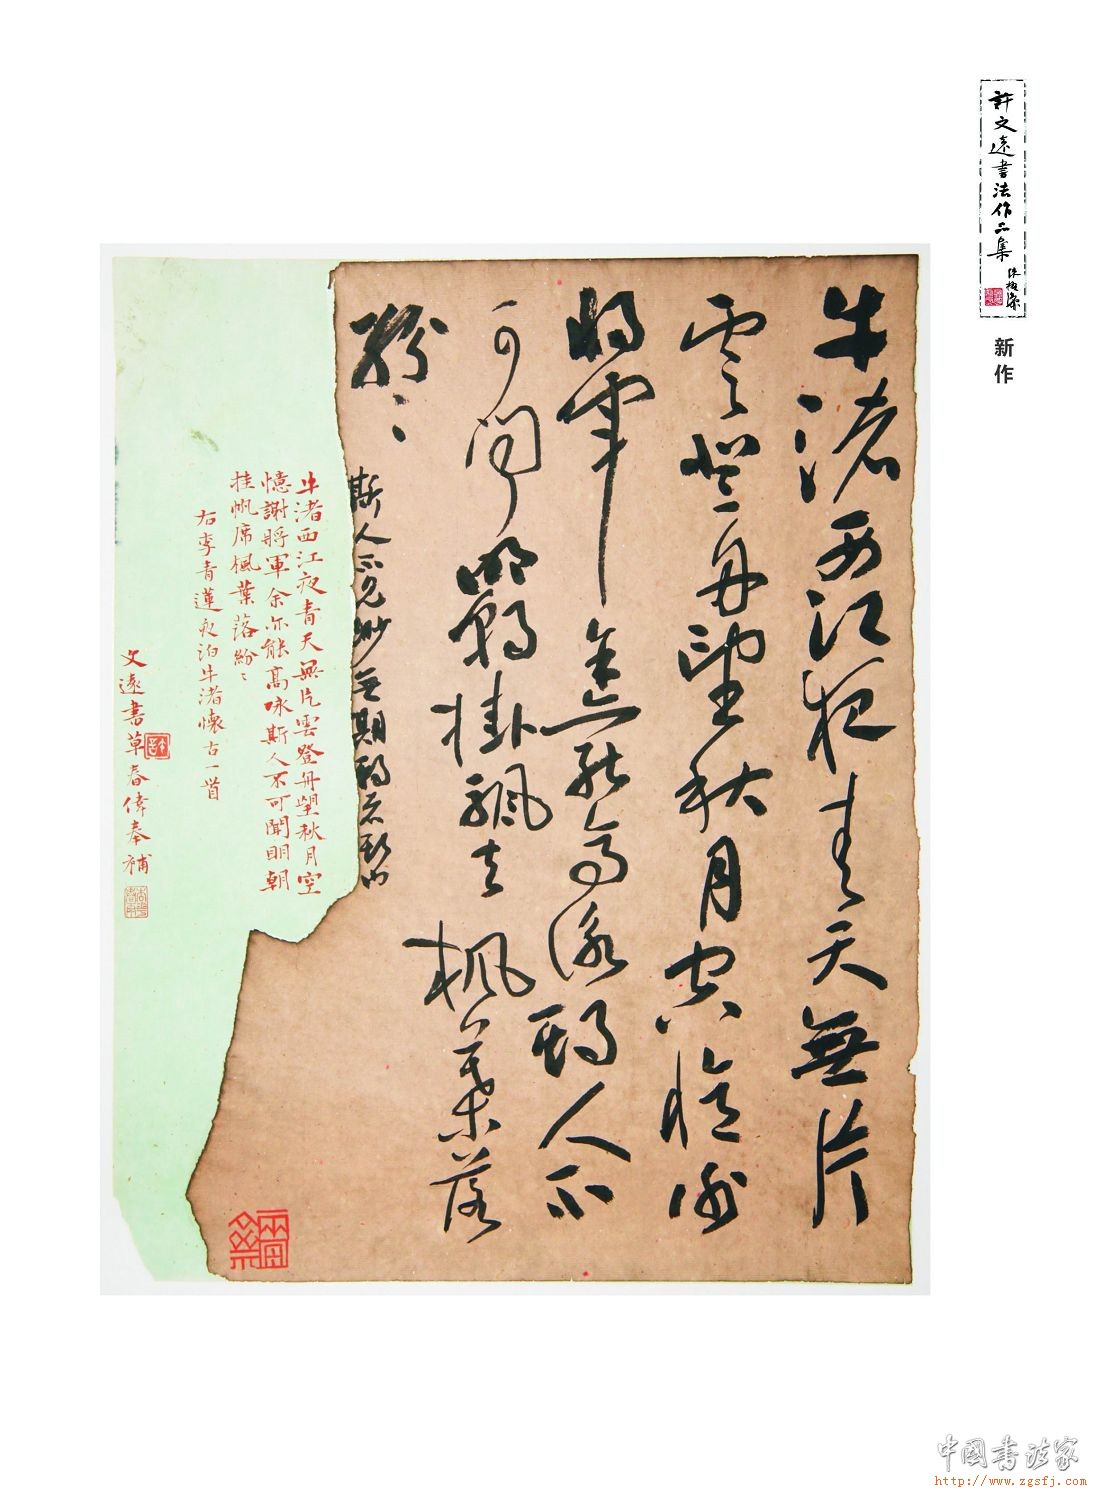 許文遠書法作品集
新作
牛渚西江夜青天無片
雲登舟望秋月空憶謝
將軍余亦能高詠斯人不
可聞明朝掛帆去楓葉落
紛〻
斯人不見
牛渚西江夜青天無片雲登舟望秋月空
憶謝將軍余亦能高咏斯人不可聞明朝
挂帆席楓葉落紛〻
右李青蓮夜泊牛渚懷古一首
文遠書草春偉奉補
中國書法家
http://www.zgsfj.com